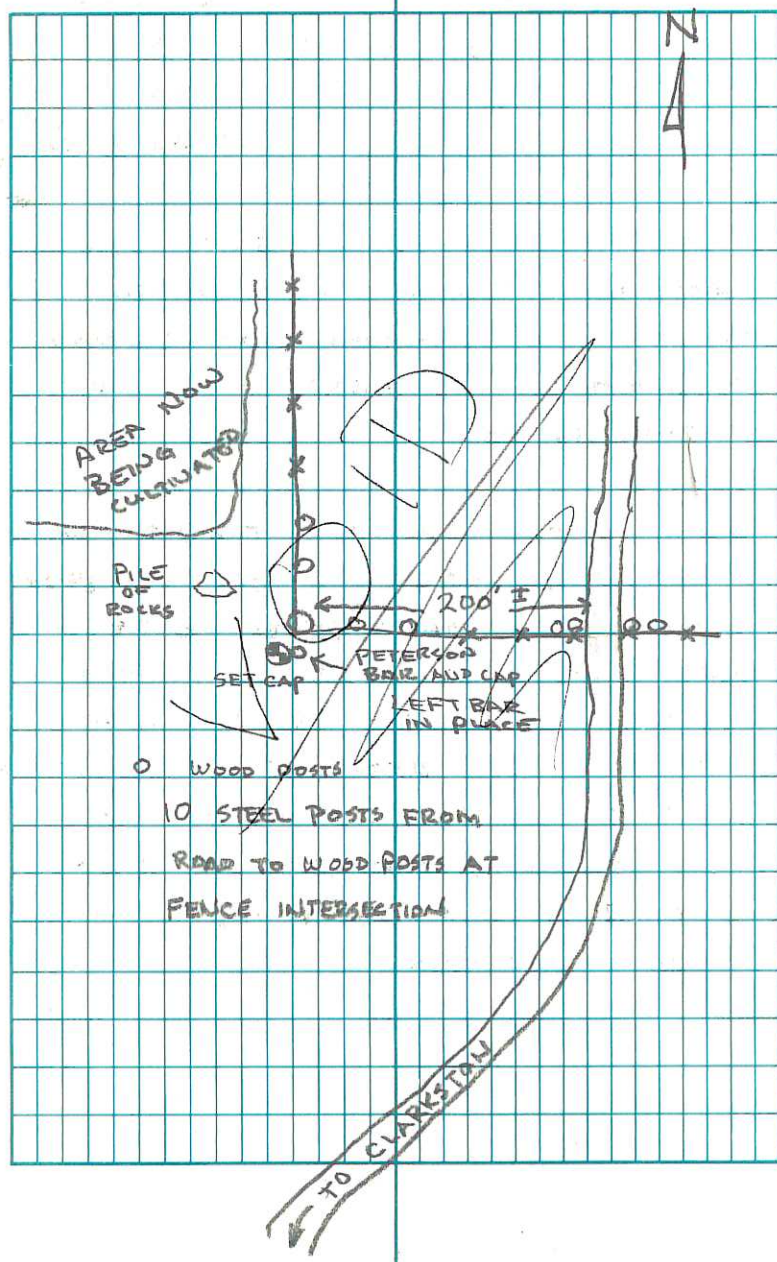 N
AREA NOW
BEING
CULTIVATED
PILE
OF
ROCKS
200' ±
SET CAP
PETERSON
BAR AND CAP
LEFT BAR
IN PLACE
O WOOD POSTS
10 STEEL POSTS FROM
ROAD TO WOOD POSTS AT
FENCE INTERSECTION
TO CLARKSTON